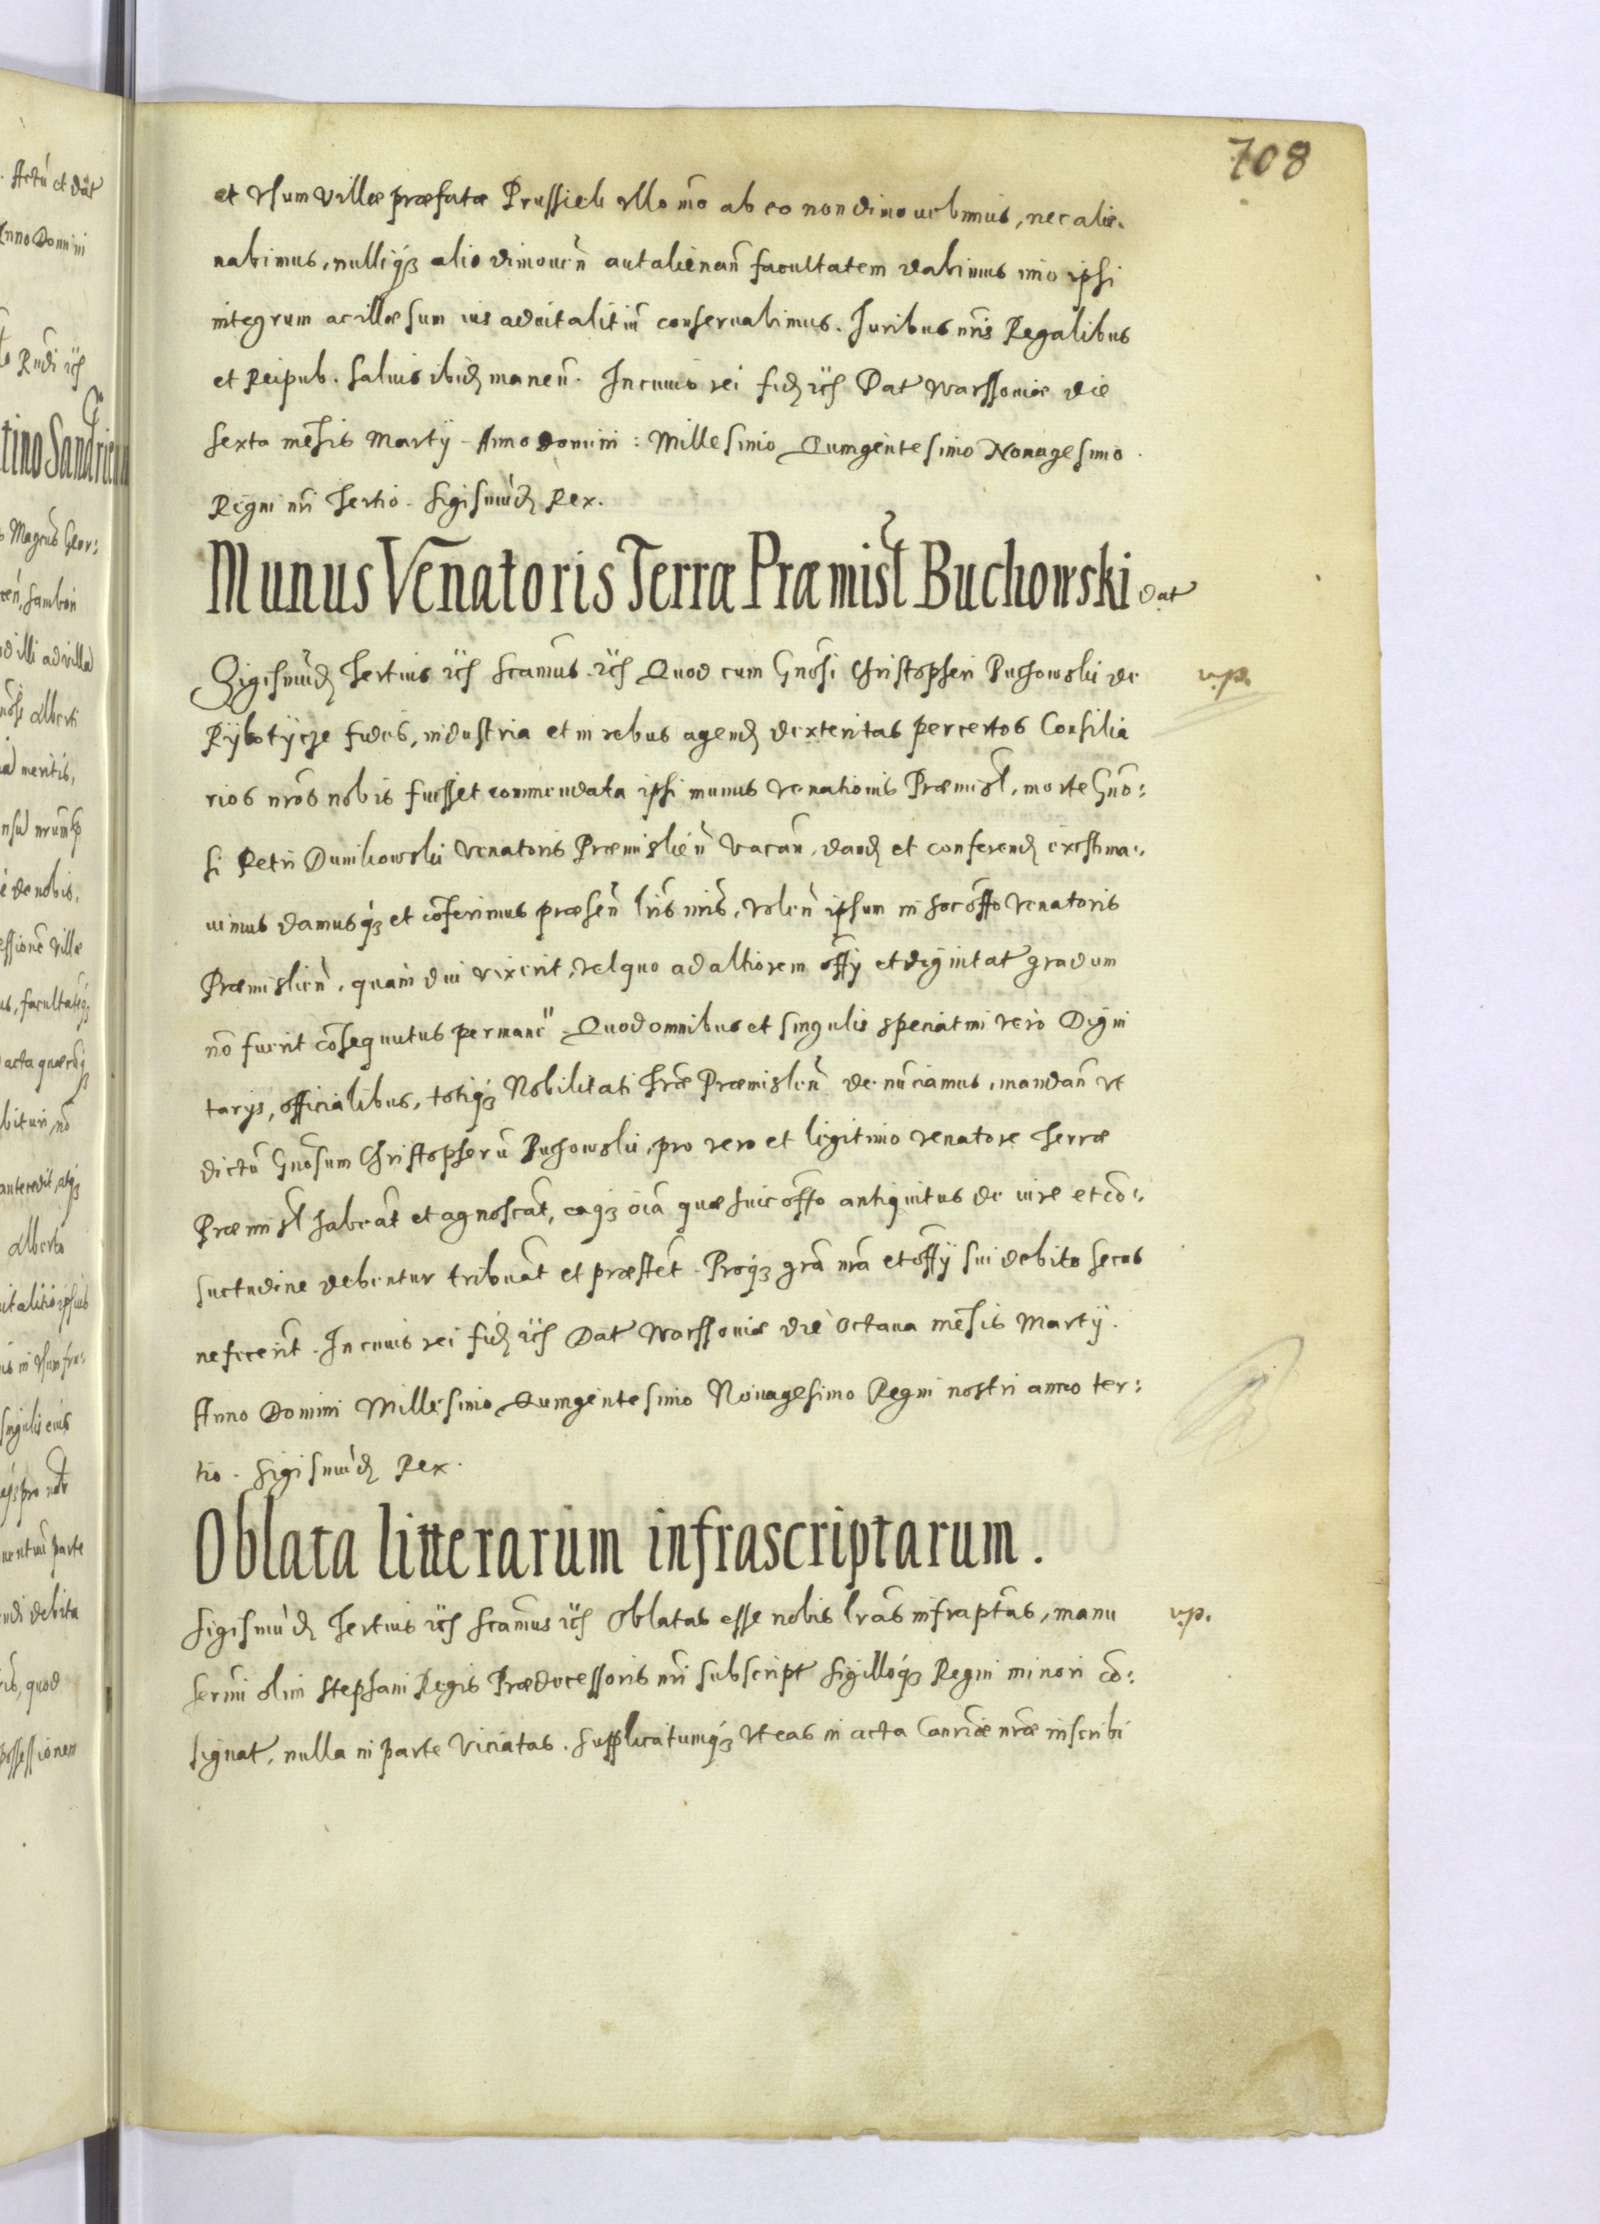 708
et Vsum Villæ præfatæ Prussieli vllo mō ab eo non dimouebimus, nec alie-
nabimus, nulliq3 alio dimouēn aut alienān facultatem dabimus imo ipsi
integrum ac illæsum ius aduitalitiū conseruabimus. Juribus nris Regalibus
et Reipub. saluis ibidē manen. In cuius rei fidē etc Dat Warssouiæ die
sexta mēsis Martÿ Anno domini: Millesimo Quingentesimo Nonagesimo.
Regni nri Tertio. Sigismūdē Rex.
Munus Venatoris Terræ Præmisl Buchowski dat
Sigismūdē Tertius etc Scamus etc Quod cum Gnosi Christopheri Puchowski de
Rybotycze fides, industria et in rebus agendē dexteritas per certos Consilia
rios nros nobis fuisset commendata ipsi munus venationis Præmisl, morte Gno:
si Petri Dunikowski Venatoris Præmislien vacan, dandē et conferendē existima:
uimus damusq3 et cōferimus præsen lris nris, volen ipsum in hoc offo venatoris
Præmislien, quam diu vixerit, vel quo ad altiorem offÿ et dignitat gradum
nō fuerit cōsequutus permanē Quod omnibus et singulis speciatim vero Digni
tarijs, officialibus, totiq3 Nobilitati Træ Præmislen denunciamus, mandan vt
dictū Gnosum Christopherū Puchowski, pro vero et legitimo venatore Terræ
Præmisl habeāt et agnoscāt, eaq3 oia quæ huic offo antiquitus de iure et cō:
suetudine debentur tribuāt et præstet. Proq3 gra nra et offÿ sui debito secus
ne fecerit. In cuius rei fidē etc Dat Warssouiæ die Octaua mēsis Martÿ.
Anno Domini Millesimo Quingentesimo Nonagesimo Regni nostri anno ter:
tio. Sigismūdē Rex.
Oblata litterarum infrascriptarum.
Sigismūdē Tertius etc Scamus etc Oblatas esse nobis lras infraptas, manu
Sermi olim Stephani Regis Prædecessoris nri subscript sigilloq3 Regni minori cō:
signat, nulla in parte viciatas. Supplicatumq3 vt eas in acta Canriæ nræ inscribi